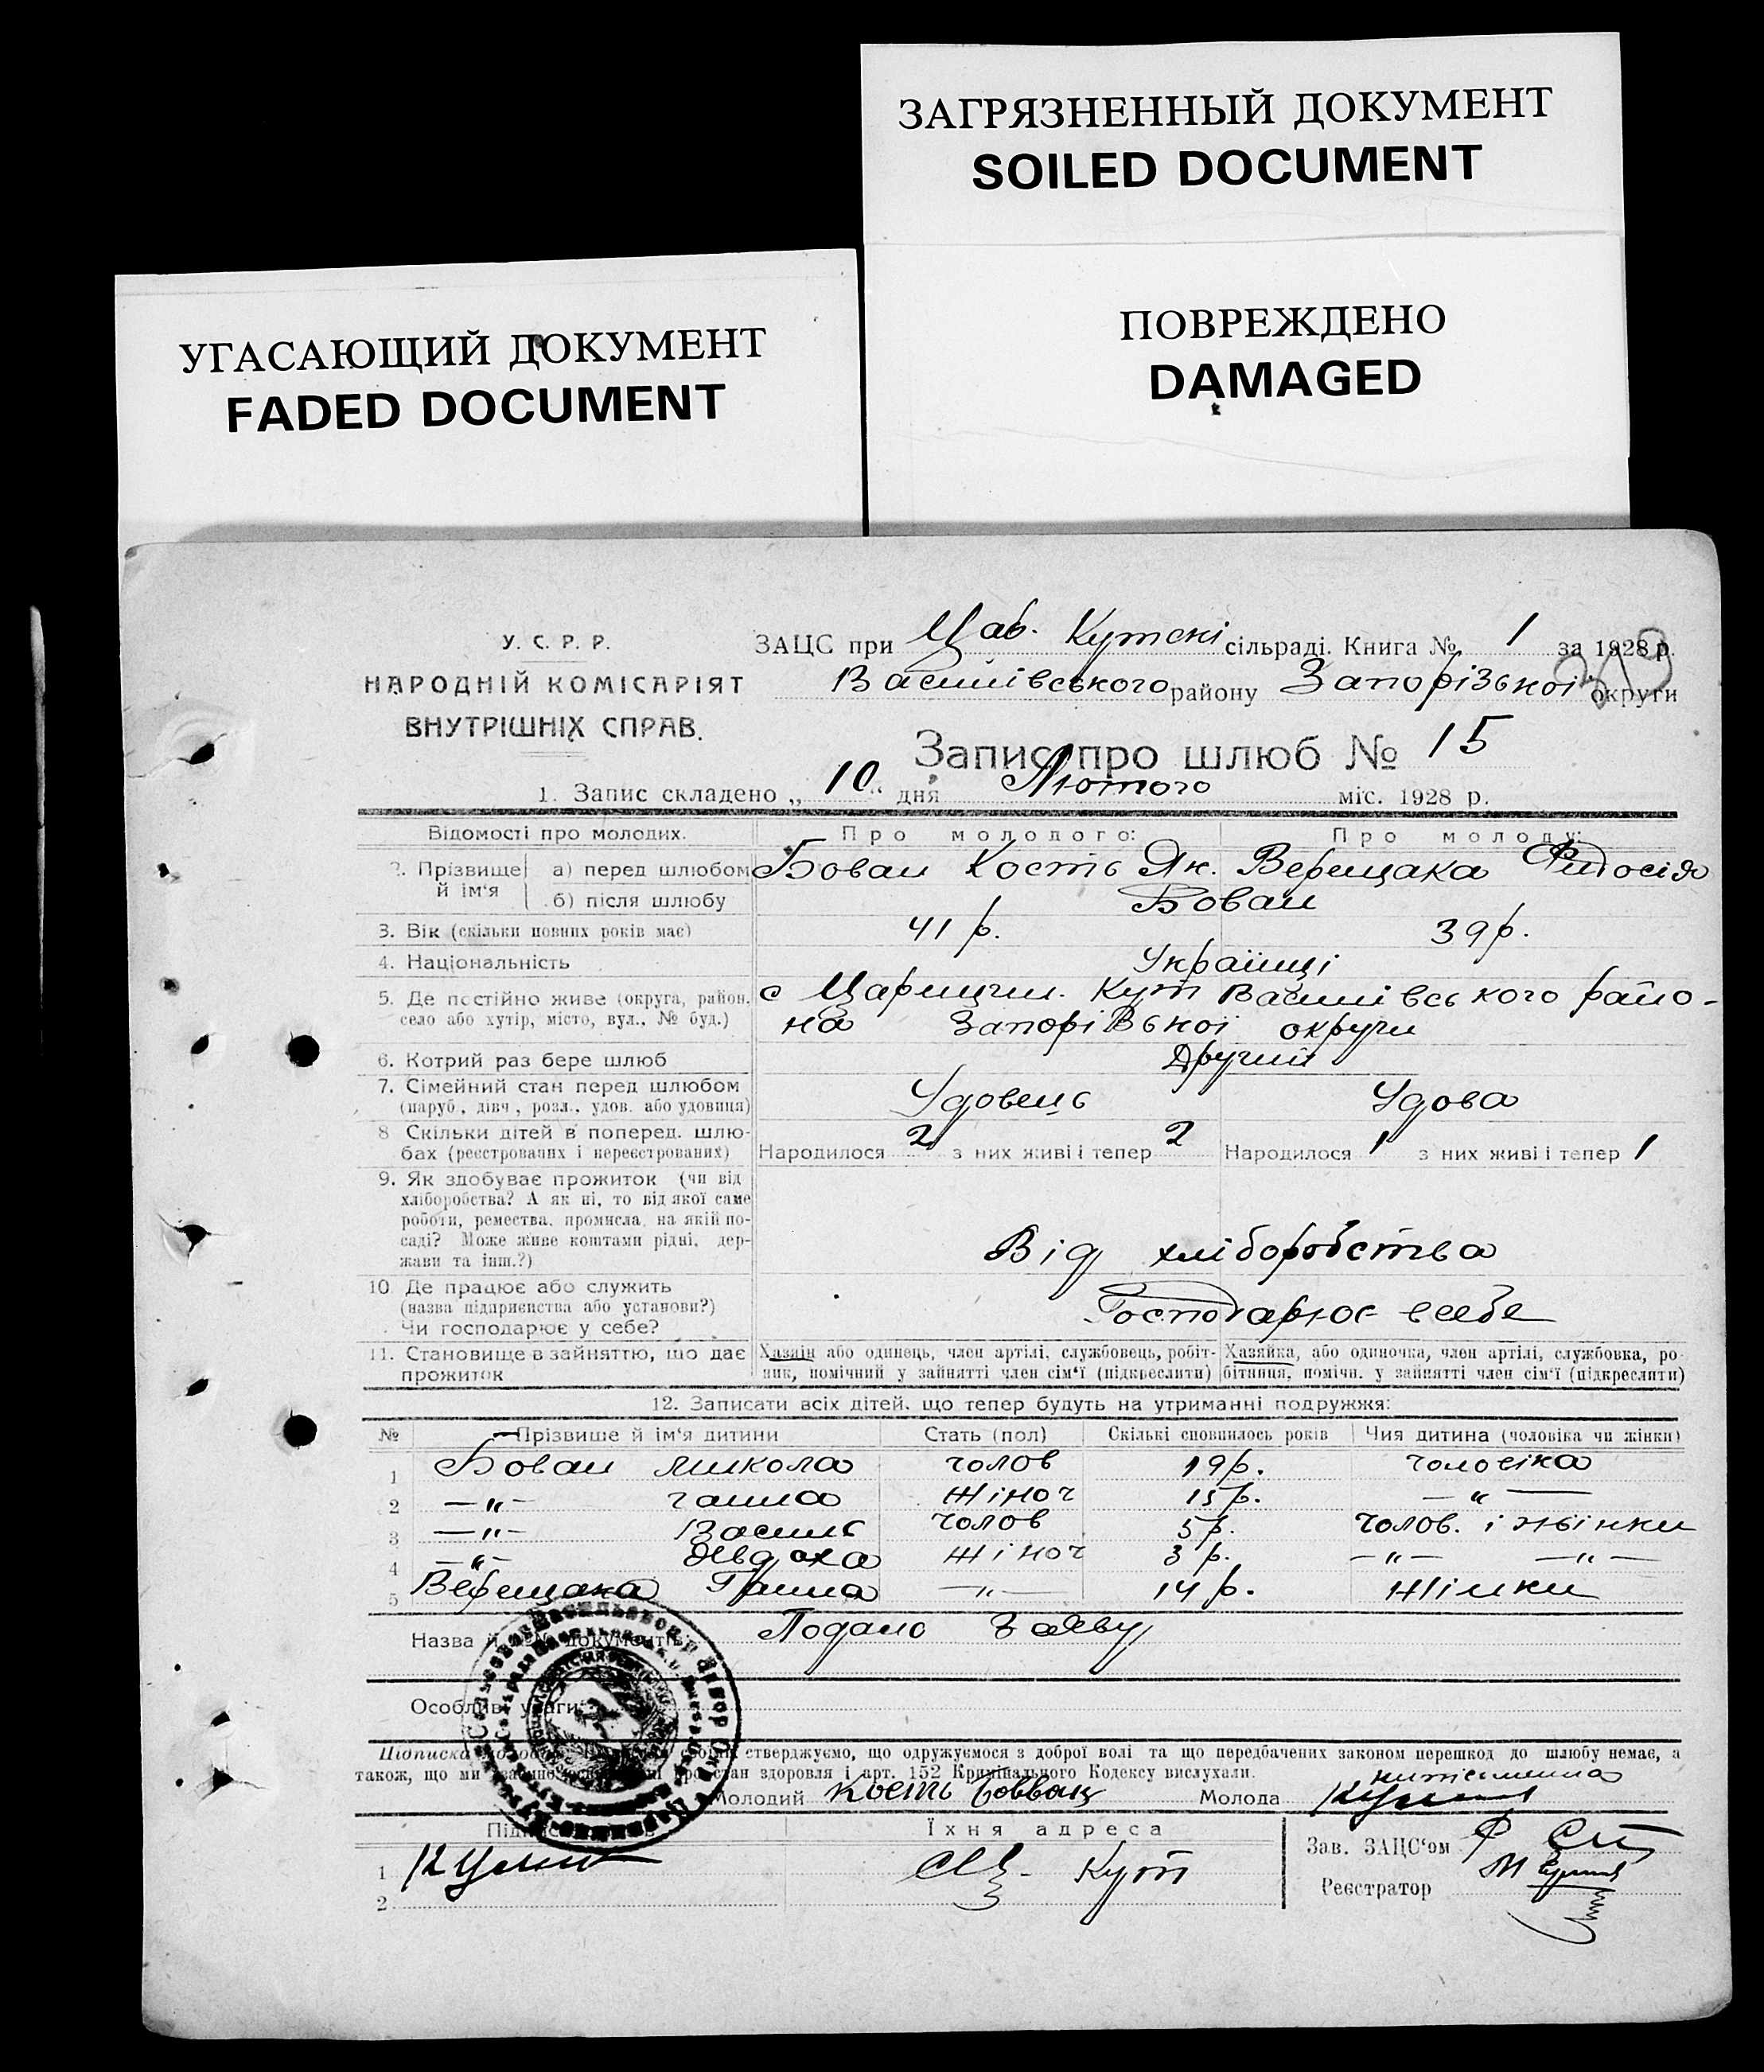 ЗАГРЯЗНЕННЫЙ ДОКУМЕНТ
SOILED DOCUMENT
ПОВРЕЖДЕНО
DAMAGED
УГАСАЮЩИЙ ДОКУМЕНТ
FADED DOCUMENT
У. С. Р. Р.
НАРОДНІЙ КОМІСАРІЯТ
ВНУТРІШНІХ СПРАВ.
ЗАЦС при Цар. Кутскі сільраді. Книга № 1 за 1928 р.
Василівського району Запорізької округи
Запис про шлюб № 15
1. Запис складено „ 10 “ дня Лютого міс. 1928 р.
Відомості про молодих. Про молодого: Про молоду:
2. Прізвище й ім‘я а) перед шлюбом Бован Кость Як. Верещака Фидосія
б) після шлюбу Бован
3. Вік (скільки повних років має) 41 р. 39 р.
4. Національність Українці
5. Де постійно живе (округа, район, с Царицин. Кут Василівського райо-
село або хутір, місто, вул., № буд.) на Запорізької округи
6. Котрий раз бере шлюб Другий
7. Сімейний стан перед шлюбом Удовець Удова
(паруб., дівч., розл., удов. або удовиця)
8 Скільки дітей в поперед. шлю-
бах (реєстрованих і нереєстрованих) Народилося 2 з них живі і тепер 2 Народилося 1 з них живі і тепер 1
9. Як здобуває прожиток (чи від
хліборобства? А як ні, то від якої саме
роботи, ремества, промисла, на якій по-
саді? Може живе коштами рідні, дер-
жави та інш.?) Від хліборобства
10 Де працює або служить
(назва підприєнства або установи?) Господарює в себе
Чи господарює у себе?
11. Становище в зайняттю, що дає Хазяїн або одинець, член артілі, службовець, робіт- Хазяйка, або одиночка, член артілі, службовка, ро-
прожиток ник, помічний у зайнятті член сім‘ї (підкреслити) бітниця, помічн. у зайнятті член сім‘ї (підкреслити)
12. Записати всіх дітей, що тепер будуть на утриманні подружжя:
№ Прізвище й ім‘я дитини Стать (пол) Скількі сповнилось років Чия дитина (чоловіка чи жінки)
1 Бован Микола чолов 19 р. чоловіка
2 —„— Ганна жіноч 15 р. —„—
3 —„— Василь чолов 5 р. чолов. і жінки
4 —„— Явдоха жіноч 3 р. —„— —„—
5 Верещака Ганна —„— 14 р. жінки
Назва й №№ документів Подано Заяву
Особливі уваги:
Підписка стверджуємо, що одружуємося з доброї волі та що передбачених законом перешкод до шлюбу немає, а
також, що ми про стан здоровля і арт. 152 Кримінального Кодексу вислухали.
неписьменна
Молодий Кость Бован Молода
Їхня адреса
Зав. ЗАЦС‘ом
1 Ц. Кут
Реєстратор
2